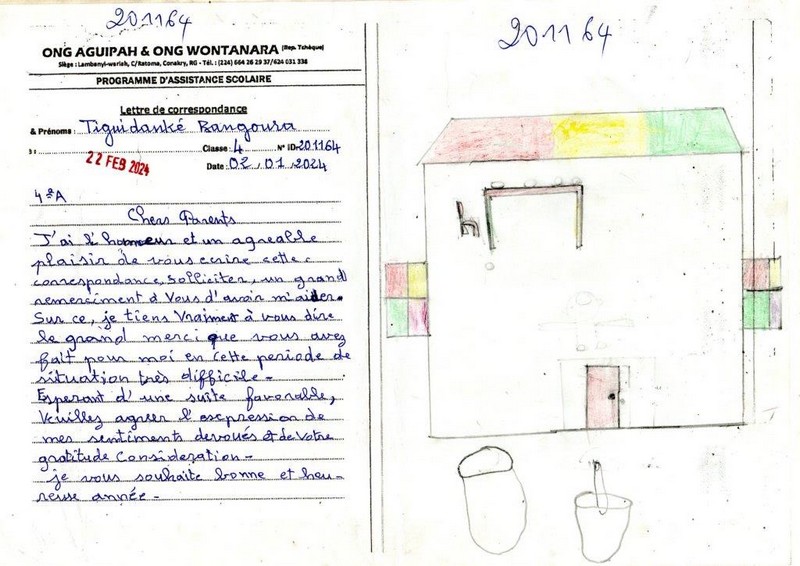 201164
ONG AGUIPAH & ONG WONTANARA (Rep. Tchèque)
Siège : Lambanyi-wariah, C/Ratoma, Conakry, RG - Tél. : (224) 664 26 29 37/624 031 338
PROGRAMME D'ASSISTANCE SCOLAIRE
Lettre de correspondance
& Prénoms : Tiguidanké Bangoura
Classe : 4 N° ID 201164
22 FEB 2024
Date : 02.01.2024
4eA
Chers Parents
J'ai l'honneur et un agreable
plaisir de vous ecrire cette
correspondance, Solliciter, un grand
remerciment à Vous d'avoir m'aider.
Sur ce, je tiens Vraiment à vous dire
le grand merci que vous avez
fait pour moi en cette periode de
situation très difficile -
Esperant d'une suite favorable,
Veuillez agreer l'expression de
mes sentiments devoués et de votre
gratitude Consideration -
je vous souhaite bonne et heu-
reuse année -
201164